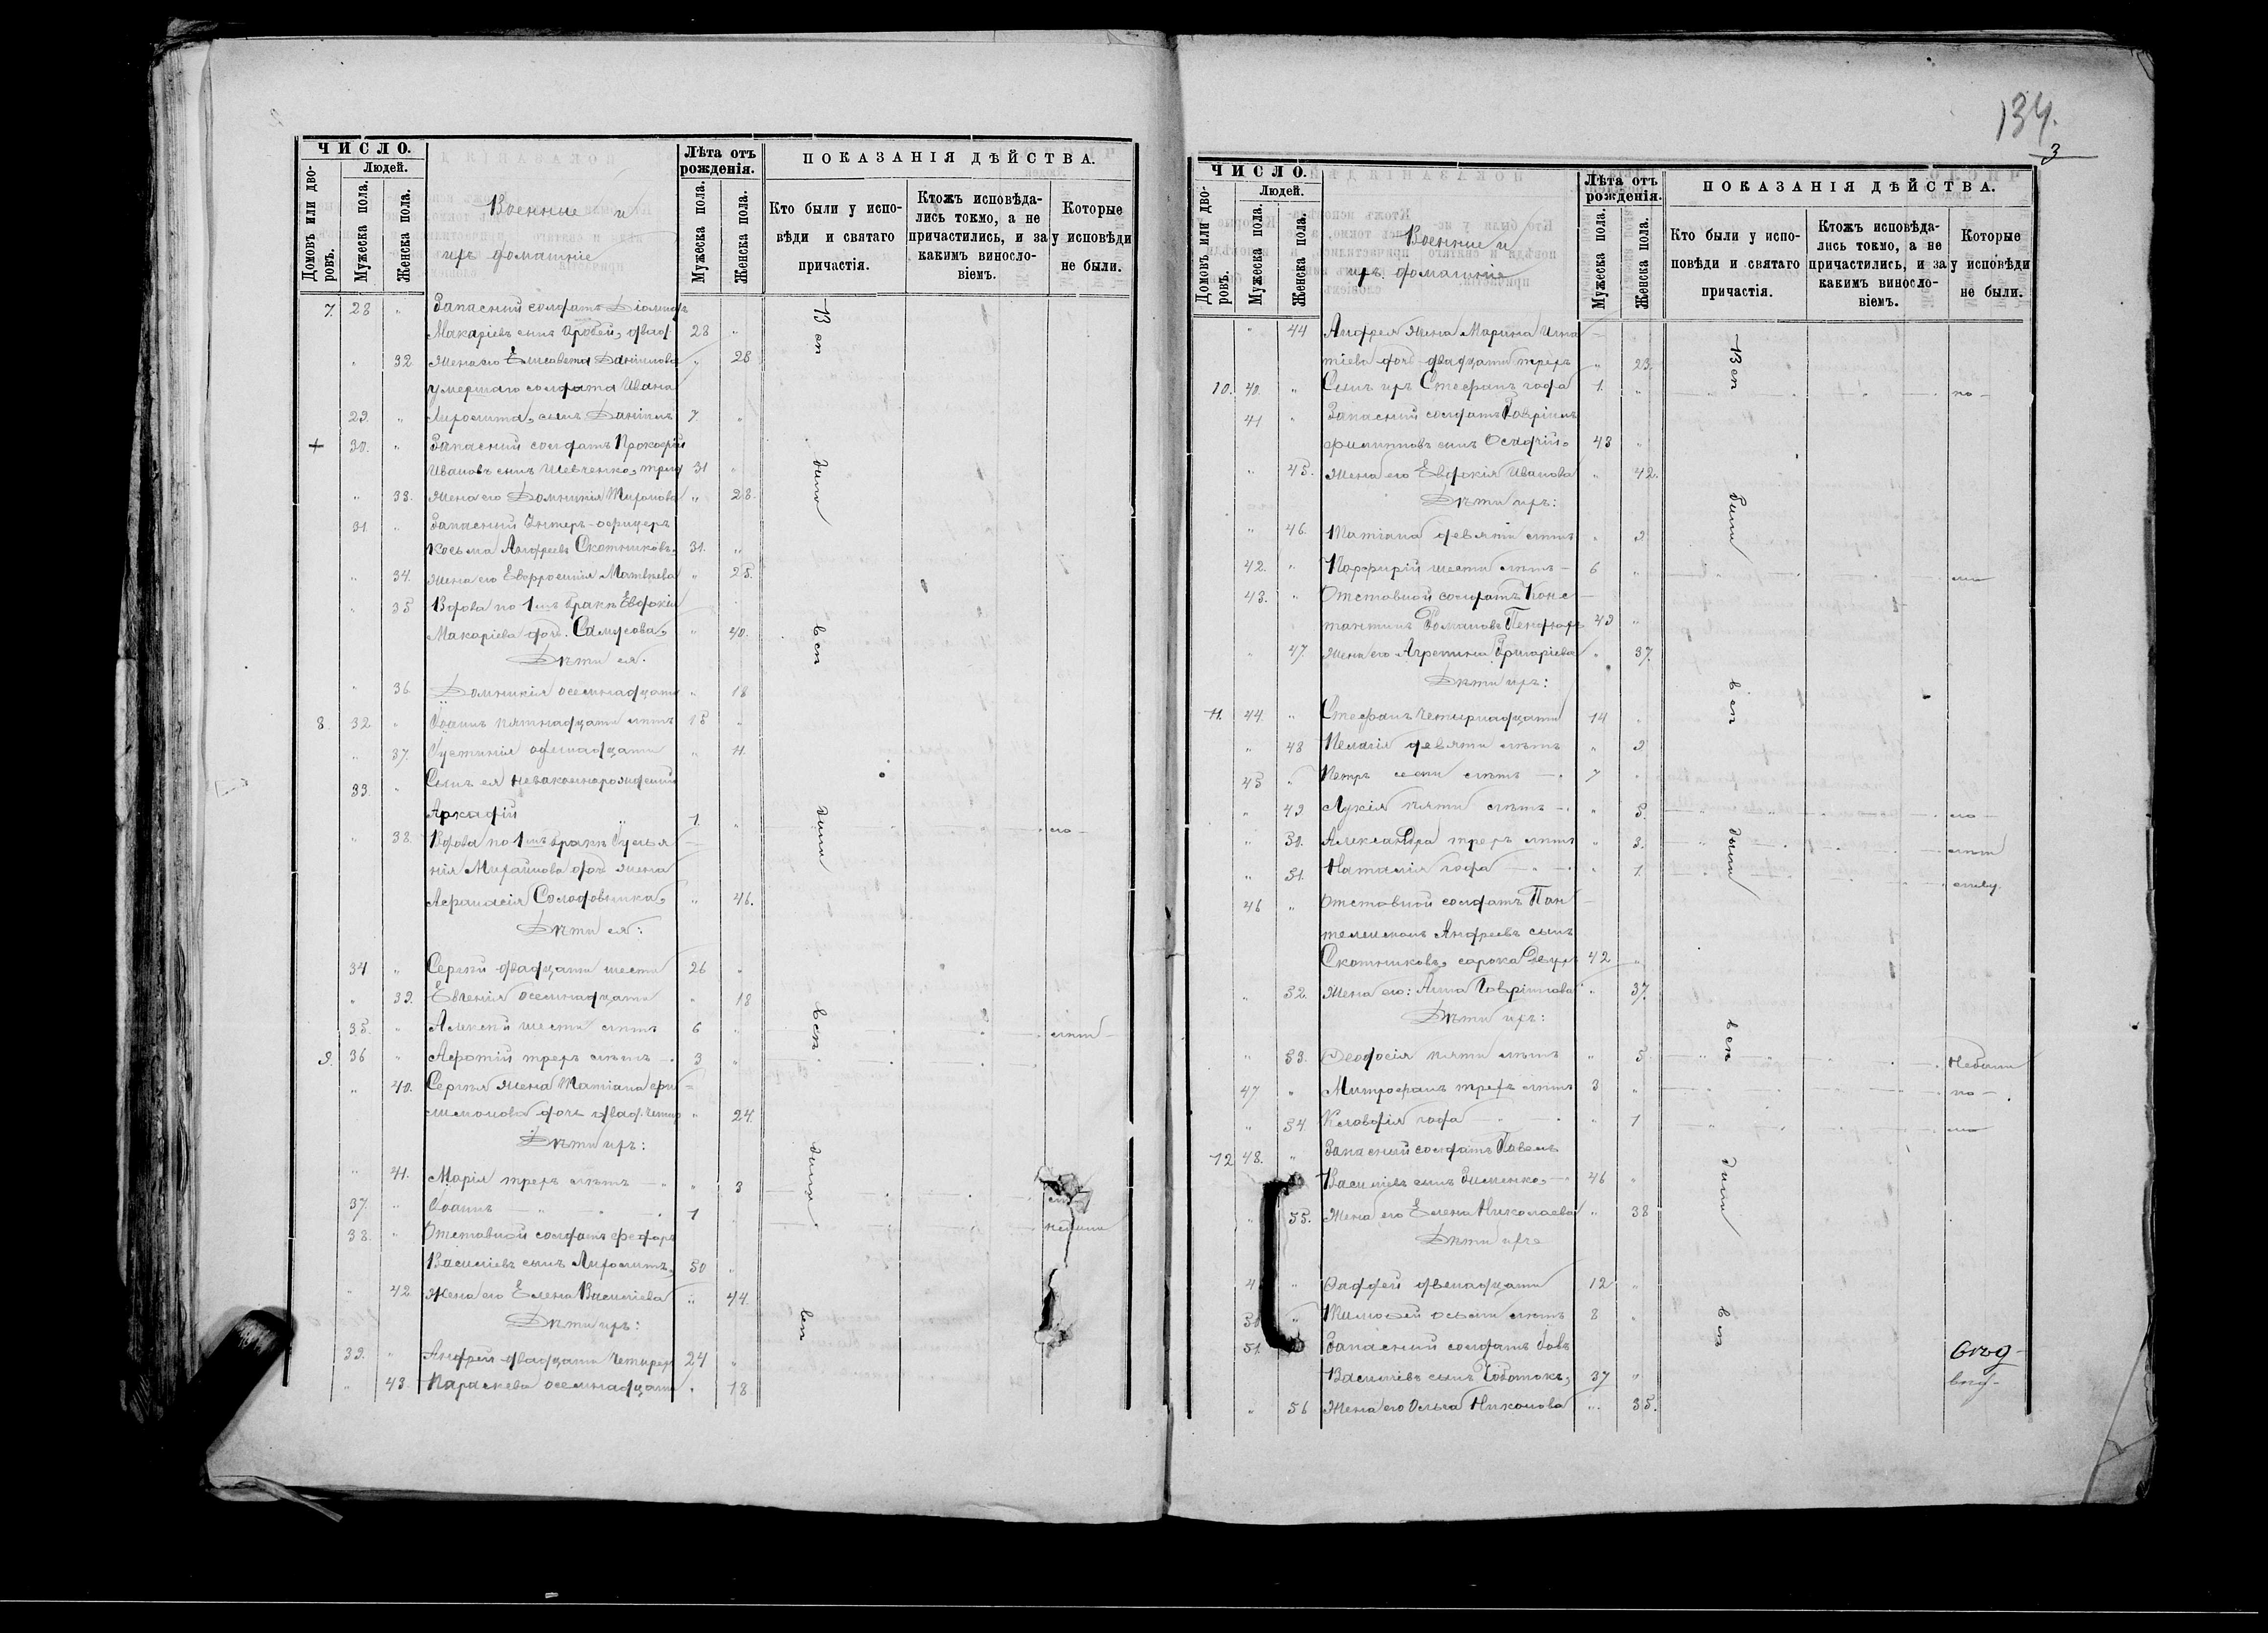 ЧИСЛО.
Домовъ или дворовъ.
Людей.
Мужеска пола.
Женска пола.
Военные и
ихъ домашніе
Лѣта отъ рожденія.
Мужеска пола.
Женска пола.
ПОКАЗАНІЯ ДѢЙСТВА.
Кто были у исповѣди и святаго причастія.
Ктожъ исповѣдались токмо, а не причастились, и за какимъ винословіемъ.
Которые у исповѣди не были.
7. 28 " Запасный солдатъ
Макаріевъ сынъ двад 28 "
" 32 Жена его Елисавета Даніилова " 28
умершаго солдата Ивана
29. " сынъ Даніилъ 7. "
+ 30. " Запасный солдатъ Прокофій
Ивановъ сынъ Шевченко, трид 31 "
" 33. Жена его Домникія Миронова " 28.
31 " Запасный Унтеръ-офицеръ
Косьма Андреевъ Скотниковъ 31. "
" 34. Жена его Евфросинія Матвѣева " 25.
" 35 Вдова по 1мъ бракѣ Евдокія
Макаріева доч. Самусова " 40.
Дѣти ея.
" 36 Домникія осемнадцати " 18
8 32 " Іоаннъ пятнадцати лѣтъ 15 "
" 37. Іустинія одинадцати " 11.
33. " Сынъ ея незаконнорожденный
Аркадій 1. " по
" 38. Вдова по 1мъ бракѣ
нія Михайлова доч. жена
Афанасія Солодовника " 46.
Дѣти ея:
34 " Сергѣй двадцати шести 26 "
" 39. Евгенія осемнадцати " 18
35. " Алексѣй шести лѣтъ 6 " лѣтъ
9. 36 " трехъ лѣтъ 3 "
" 40. Сергѣя жена Татіана Фи
лимонова дочь двад. четыр " 24.
Дѣти ихъ:
" 41. Марія трехъ лѣтъ " 3
37. " Іоаннъ 1 не были
38. " Отставной солдатъ Федоръ
Василіевъ сынъ 50 "
" 42 Жена его Елена Василіева " 44.
Дѣти ихъ:
39. " Андрей двадцати четырехъ 24 "
" 43. Параскева осемнадцати " 18
Въ сп
дили
въ сп
дили
въ сп
дили
въ сп
134.
3
ЧИСЛО.
Домовъ или дворовъ.
Людей.
Мужеска пола.
Женска пола.
Военные и
ихъ домашніе
Лѣта отъ рожденія.
Мужеска пола.
Женска пола.
ПОКАЗАНІЯ ДѢЙСТВА.
Кто были у исповѣди и святаго причастія.
Ктожъ исповѣдались токмо, а не причастились, и за какимъ винословіемъ.
Которые у исповѣди не были.
" 44 Андрея жена Марина Игна
тіева доч. двадцати трехъ " 23.
10. 40. " Сынъ ихъ Стефанъ года 1. " по
41 " Запасный солдатъ Гавріилъ
Филипповъ сынъ Осадчій 43 "
" 45. Жена его Евдокія Иванова " 42.
Дѣти ихъ:
" 46. Татіана девяти лѣтъ " 9
42. " Порфирій шести лѣтъ 6 "
43. " Отставной солдатъ Конс
тантинъ Романовъ 49 "
" 47. Жена его Агрепина Григоріева " 37.
Дѣти ихъ:
11. 44. " Стефанъ четырнадцати 14 "
" 48 Пелагія девяти лѣтъ " 9
45 " Петръ семи лѣтъ 7 "
" 49 Лукія пяти лѣтъ " 5. по
" 50. Александра трехъ лѣтъ " 3. лѣтъ
" 51. Наталія года " 1.
46 " Отставной солдатъ Пан
телеимонъ Андреевъ сынъ
Скотниковъ, сорока двух 42 "
" 52. Жена его: Анна Гавріилова " 37.
Дѣти ихъ:
" 53. Феодосія пяти лѣтъ " 5. Не были
47 " Митрофанъ трехъ лѣтъ 3 " по
" 54. Клавдія года " 1
12 48. " Запасный солдатъ Павелъ
Василіевъ сынъ Зименко 46 "
" 55. Жена его Елена Николаева " 38
Дѣти ихъ
4 " Фаддей двенадцати 12 "
50 " Тимофей осьми лѣтъ 8 "
51. Запасный солдатъ
Василіевъ сынъ Чоботокъ 37 "
" 56 Жена его Ольга Никонова " 35.
Въ сп
дили
въ сп
дили
въ сп
дили
въ сп